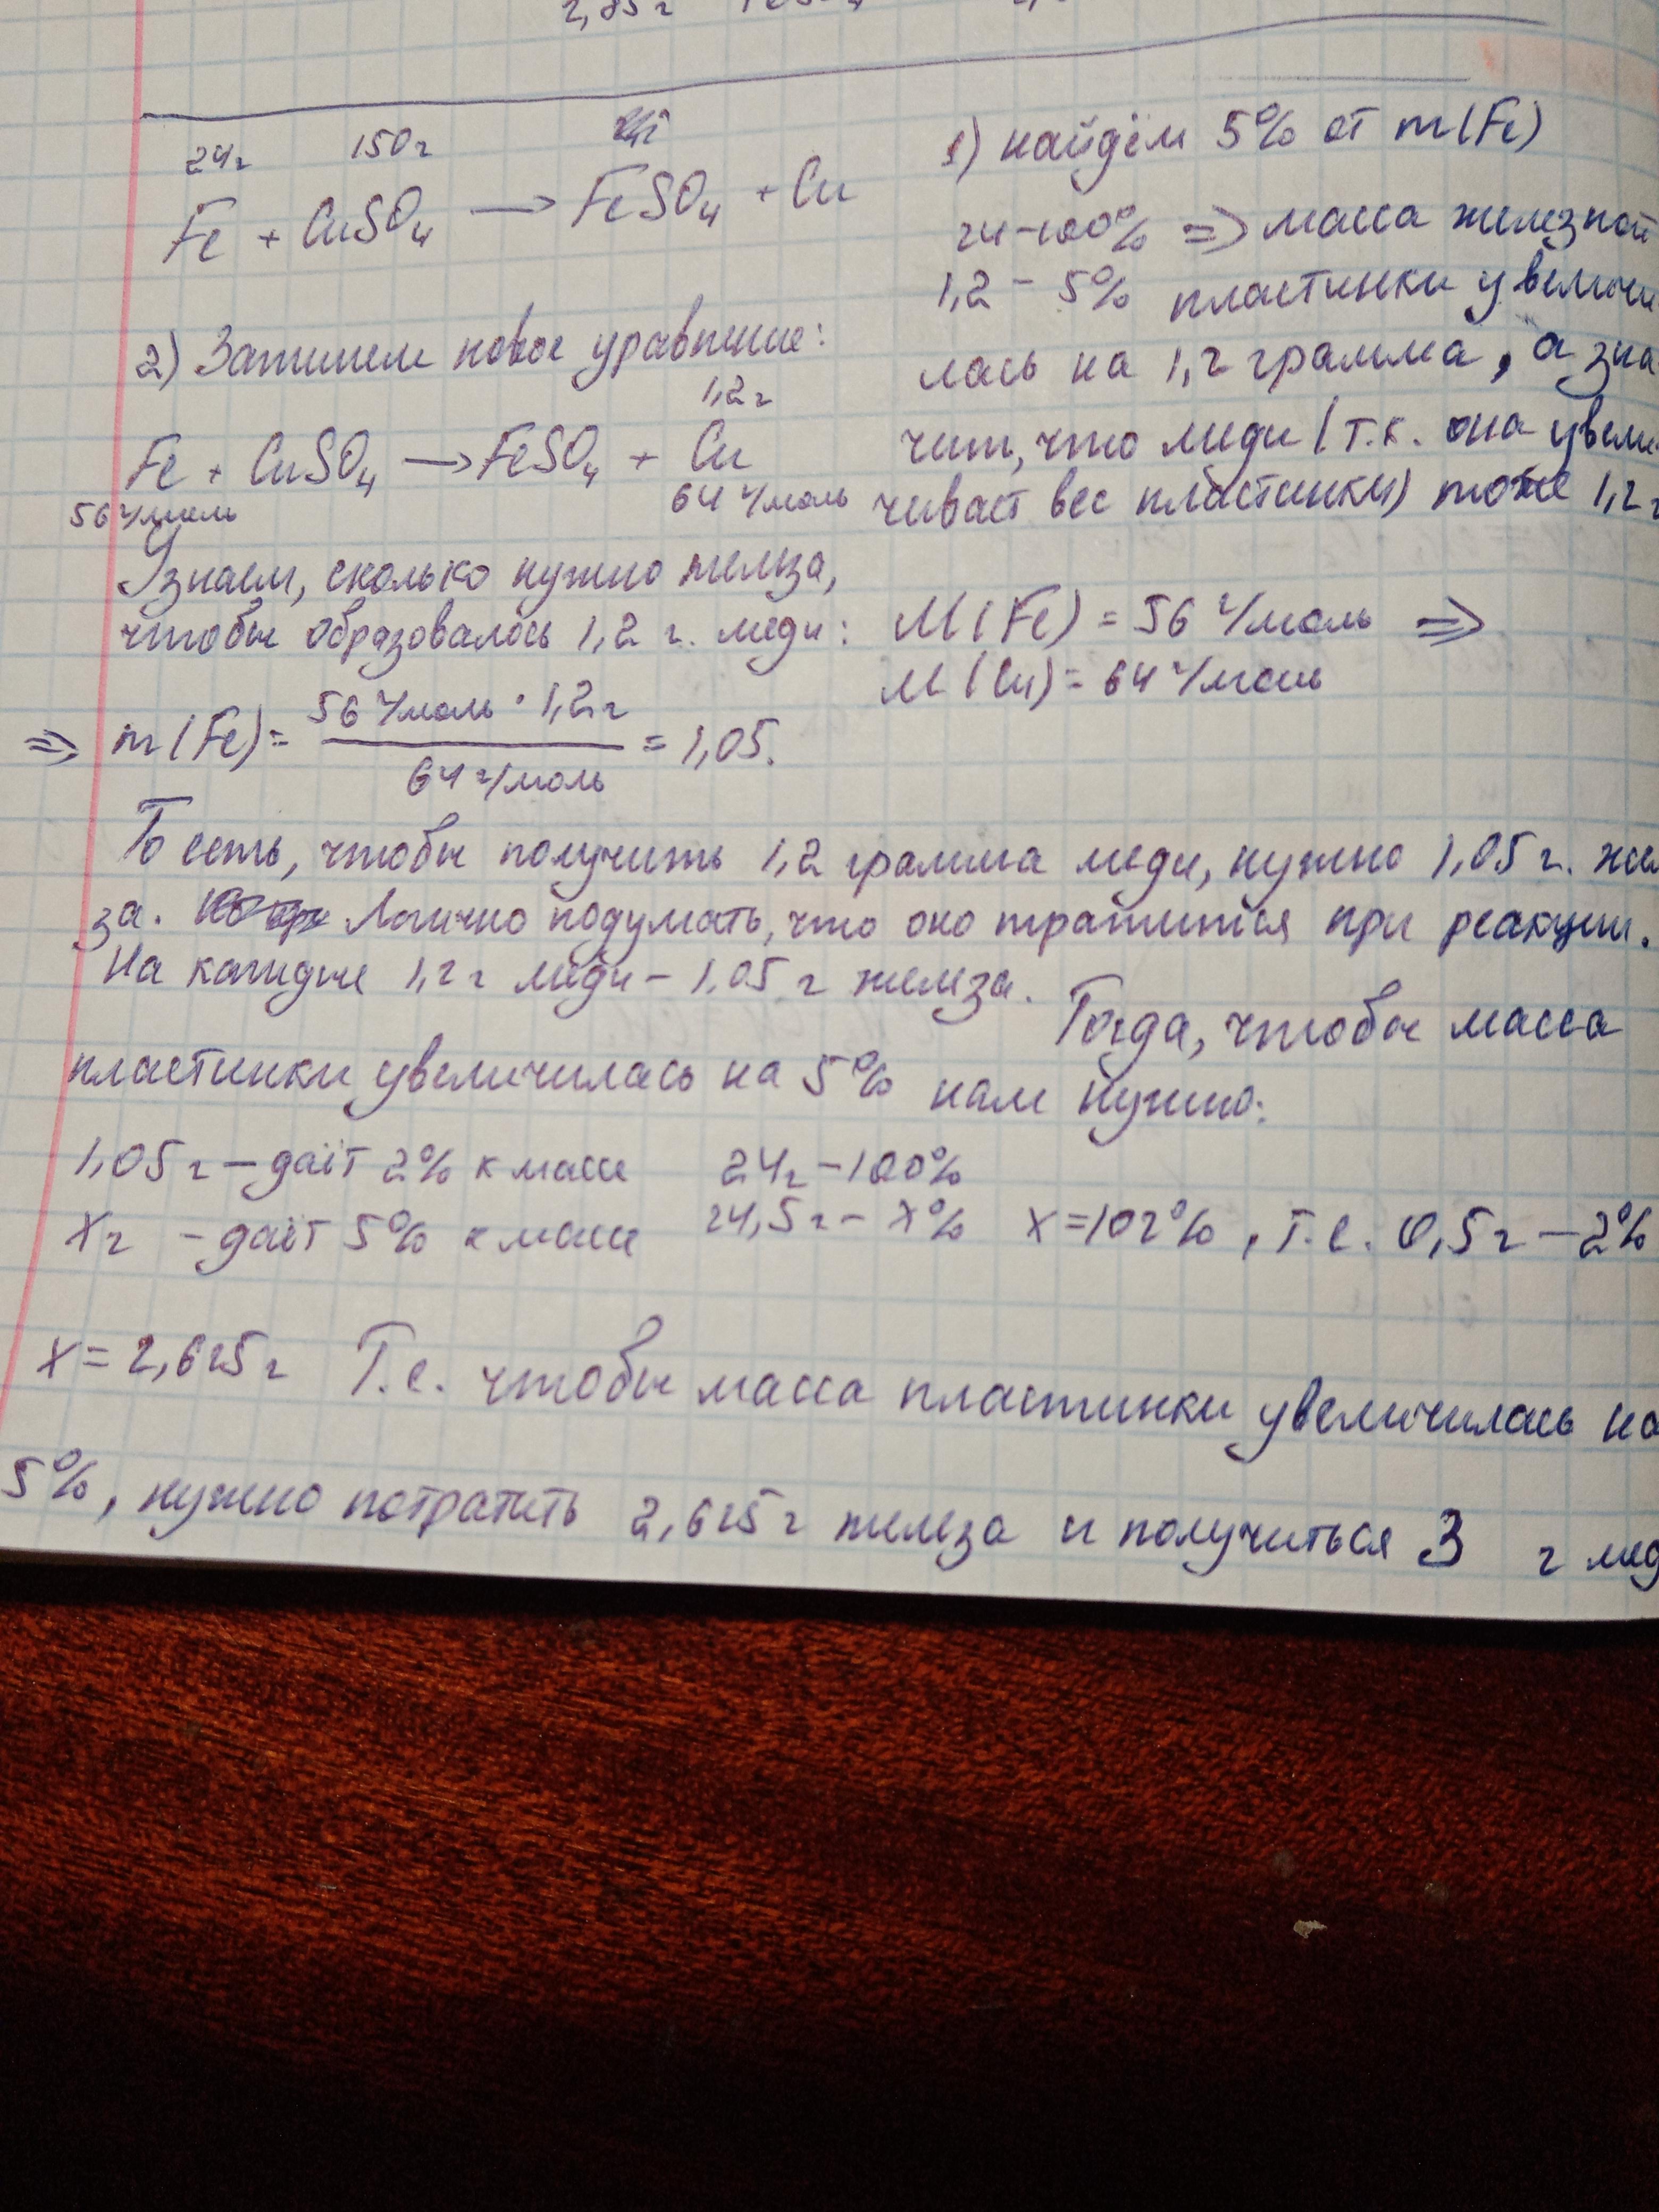 2,85г
24г 150г
Fe + CuSO₄ → FeSO₄ + Cu
1) найдём 5% от m(Fe)
24-100% => масса железной
1,2 - 5% пластинки увеличи
лась на 1,2 грамма, а зна
чит, что меди (т.к. она увели
чивает вес пластинки) тоже 1,2 г
2) Запишем новое уравнение:
1,2г
Fe + CuSO₄ → FeSO₄ + Cu
56 г/моль 64 г/моль
Узнаем, сколько нужно железа,
чтобы образовалось 1,2 г. меди:
M(Fe) = 56 г/моль =>
M(Cu) = 64 г/моль
=> m(Fe) = 56 г/моль · 1,2г / 64 г/моль = 1,05.
То есть, чтобы получить 1,2 грамма меди, нужно 1,05 г. жел
за. Логично подумать, что оно тратится при реакции.
На каждые 1,2 г меди - 1,05 г железа. Тогда, чтобы масса
пластинки увеличилась на 5% нам нужно:
1,05 г - даёт 2% к массе 24г - 100%
xг - даёт 5% к массе 24,5г - x% x=102%, т.е. 0,5г - 2%
x = 2,625г Т.е. чтобы масса пластинки увеличилась на
5%, нужно потратить 2,625г железа и получиться 3 г мед